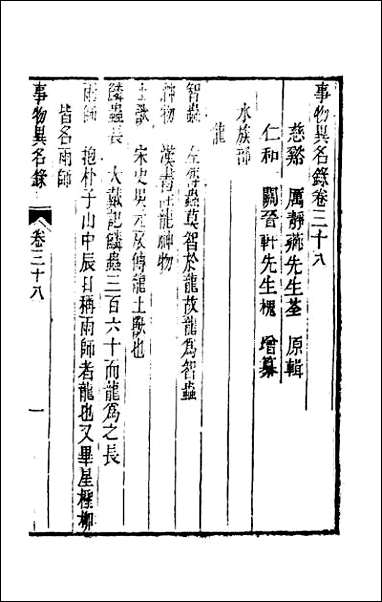 事物異名錄卷三十八
慈谿 厲靜薌先生荃 原輯
仁和 關晉軒先生槐 增纂
水族部
龍
智蟲 左傳蟲莫智於龍故龍為智蟲
神物 漢書注龍神物
土獸 宋史吳元扆傳龍土獸也
鱗蟲長 大戴記鱗蟲三百六十而龍為之長
雨師 抱朴子山中辰日稱雨師者龍也又畢星檉柳
皆名雨師
事物異名錄 卷三十八 一